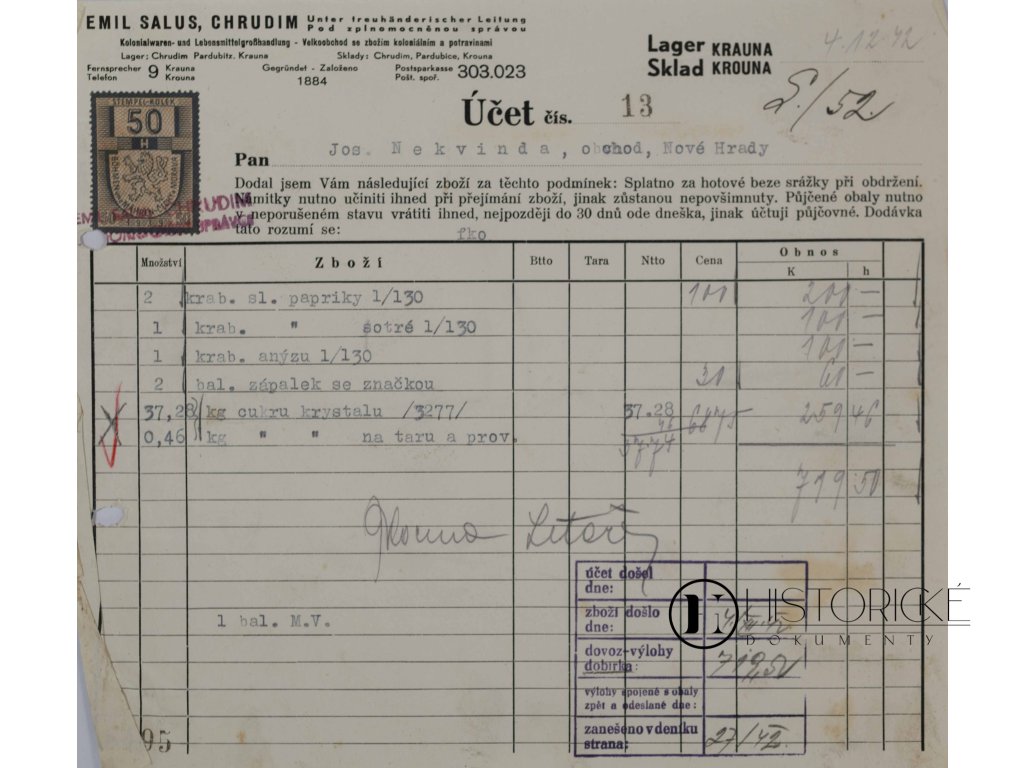 EMIL SALUS, CHRUDIM Unter treuhänderischer Leitung
Pod zplnomocněnou správou
Kolonialwaren- und Lebensmittelgroßhandlung - Velkoobchod se zbožím koloniálním a potravinami
Lager: Chrudim Pardubitz. Krauna Sklady: Chrudim, Pardubice, Krouna
Fernsprecher Telefon 9 Krauna Krouna
Gegründet - Založeno 1884
Postsparkasse Pošt. spoř. 303.023
Lager KRAUNA
Sklad KROUNA
4.12.42
STEMPEL-KOLEK
50
H
Účet čís. 13
/52.
Pan Jos. Nekvinda, obchod, Nové Hrady
Dodal jsem Vám následující zboží za těchto podmínek: Splatno za hotové beze srážky při obdržení.
Námitky nutno učiniti ihned při přejímání zboží, jinak zůstanou nepovšimnuty. Půjčené obaly nutno
v neporušeném stavu vrátiti ihned, nejpozději do 30 dnů ode dneška, jinak účtuji půjčovné. Dodávka
tato rozumí se: fko
Množství Zboží Btto Tara Ntto Cena Obnos
K h
2 krab. sl. papriky 1/130 100 200 —
1 krab. " šotré 1/130 100 —
1 krab. anýzu 1/130 100 —
2 bal. zápalek se značkou 30 60 —
37,28 kg cukru krystalu /3277/ 37.28 6875 259 46
0,46 kg " " na taru a prov. 46
3774
719 50
účet došel
dne:
zboží došlo
dne:
1 bal. M.V.
dovoz-výlohy
dobírka: 719,50
výlohy spojené s obaly
zpět a odeslané dne:
zaneseno v deníku
strana: 27/42.
95
HISTORICKÉ
DOKUMENTY